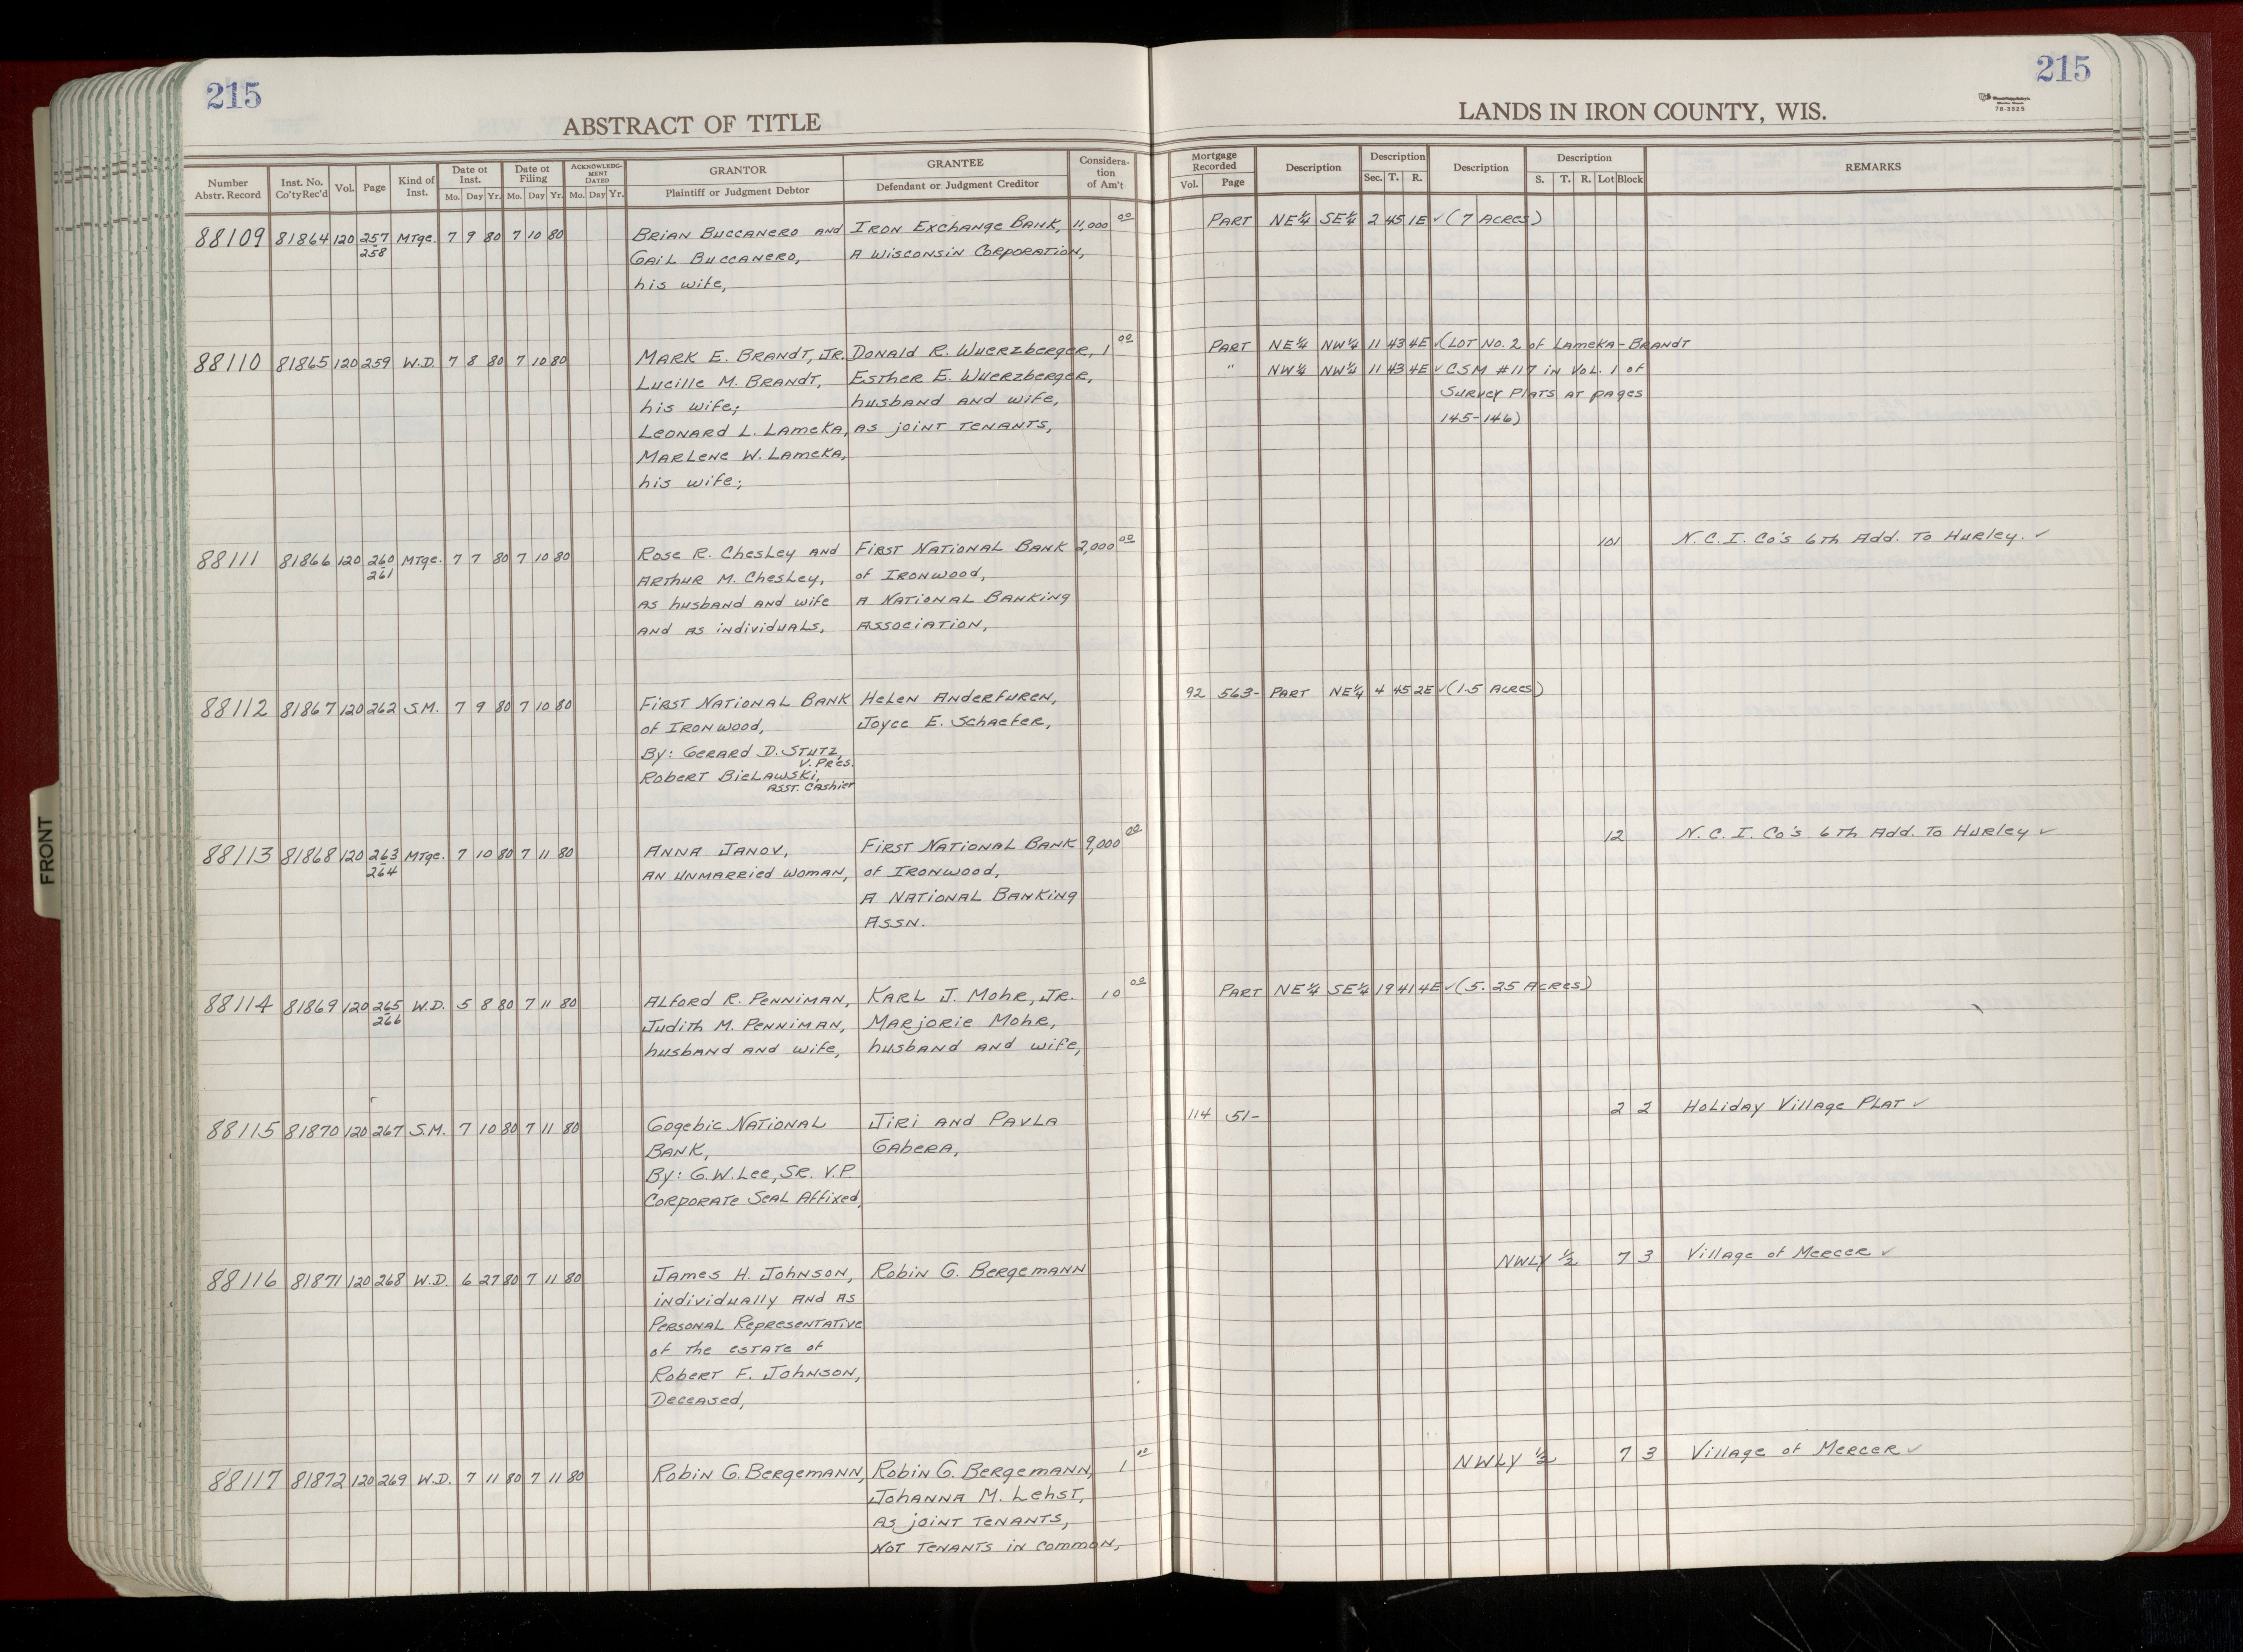 215
ABSTRACT OF TITLE
Number
Abstr. Record
Inst. No.
Co'ty Rec'd
Vol.
Page
Kind of
Inst.
Date of
Inst.
Mo. Day Yr.
Date of
Filing
Mo. Day Yr.
ACKNOWLEDG-
MENT
DATED
Mo. Day Yr.
GRANTOR
Plaintiff or Judgment Debtor
GRANTEE
Defendant or Judgment Creditor
Considera-
tion
of Am't
215
LANDS IN IRON COUNTY, WIS.
76-3525
Mortgage
Recorded
Vol. Page
Description
Description
Sec. T. R.
Description
Description
S. T. R. Lot Block
REMARKS
88109 81864 120 257 MTge. 7 9 80 7 10 80 Brian Buccanero and Iron Exchange Bank, 11,000 00 PART NE¼ SE¼ 2 45 1E ✓ (7 Acres)
258 Gail Buccanero, A Wisconsin Corporation,
his wife,
88110 81865 120 259 W.D. 7 8 80 7 10 80 Mark E. Brandt, Jr. Donald R. Wuerzberger, 1 00 PART NE¼ NW¼ 11 43 4E ✓ (LOT No. 2 of Lameka-Brandt
Lucille M. Brandt, Esther E. Wuerzberger, " NW¼ NW¼ 11 43 4E ✓ CSM #117 in Vol. 1 of
his wife; husband and wife, Survey Plats at pages
Leonard L. Lameka, as joint tenants, 145-146)
Marlene W. Lameka,
his wife;
88111 81866 120 260 MTge. 7 7 80 7 10 80 Rose R. Chesley and First National Bank 2,000 00 101 N.C.I. Co's 6th Add. To Hurley. ✓
261 Arthur M. Chesley, of Ironwood,
as husband and wife A National Banking
and as individuals, Association,
88112 81867 120 262 S.M. 7 9 80 7 10 80 First National Bank Helen Anderfuren, 92 563- PART NE¼ 4 45 2E ✓ (1.5 Acres)
of Ironwood, Joyce E. Schaefer,
By: Gerard D. Stutz,
V. Pres.
Robert Bielawski,
Asst. Cashier
88113 81868 120 263 MTge. 7 10 80 7 11 80 Anna Janov, First National Bank 9,000 00 12 N.C.I. Co's 6th Add. To Hurley ✓
264 an unmarried woman, of Ironwood,
A National Banking
Assn.
88114 81869 120 265 W.D. 5 8 80 7 11 80 Alford R. Penniman, Karl J. Mohr, Jr. 10 00 PART NE¼ SE¼ 19 41 4E ✓ (5.25 Acres)
266 Judith M. Penniman, Marjorie Mohr,
husband and wife, husband and wife,
88115 81870 120 267 S.M. 7 10 80 7 11 80 Gogebic National Jiri and Pavla 114 51- 2 2 Holiday Village Plat ✓
Bank, Gabera,
By: G.W. Lee, Sr. V.P.
Corporate Seal Affixed,
88116 81871 120 268 W.D. 6 27 80 7 11 80 James H. Johnson, Robin G. Bergemann NWLY ½ 7 3 Village of Mercer ✓
individually and as
Personal Representative
of the estate of
Robert F. Johnson,
Deceased,
88117 81872 120 269 W.D. 7 11 80 7 11 80 Robin G. Bergemann, Robin G. Bergemann, 1 00 NWLY ½ 7 3 Village of Mercer ✓
Johanna M. Lehst,
as joint tenants,
not tenants in common,
FRONT